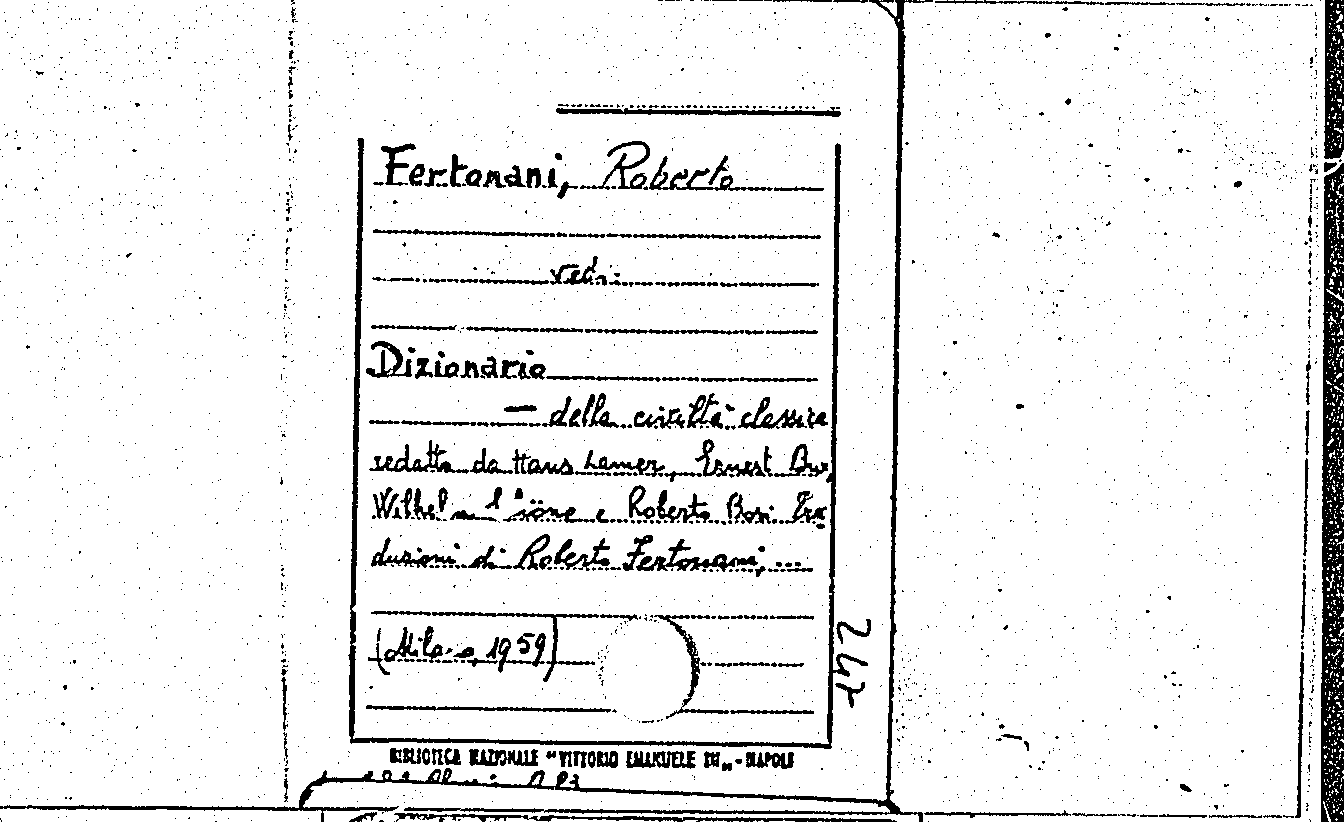 Fertonani, Roberto
vedi:
Dizionario
— della civiltà classica
redatto da Hans Lamer, Ernest Bux,
Wilhelm e Roberto Bosi Tra-
duzioni di Roberto Fertonani, ...
(Milano, 1959)
247
BIBLIOTECA NAZIONALE "VITTORIO EMANUELE III„ - NAPOLI